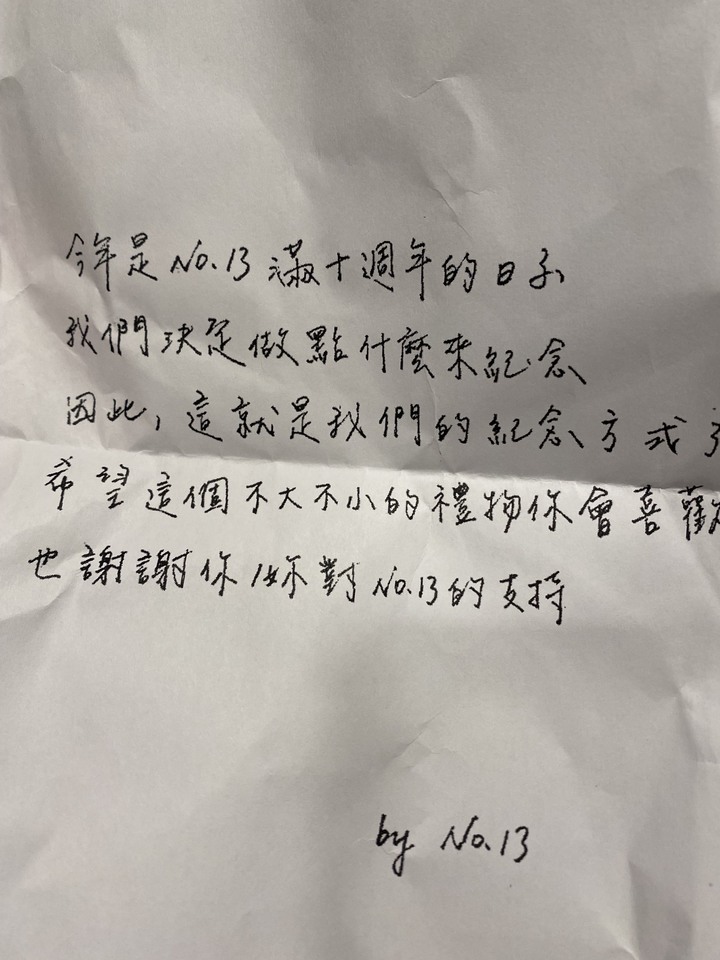 今年是No.13滿十週年的日子
我們決定做點什麼來紀念
因此，這就是我們的紀念方式
希望這個不大不小的禮物你會喜歡
也謝謝你/妳對No.13的支持
by No.13